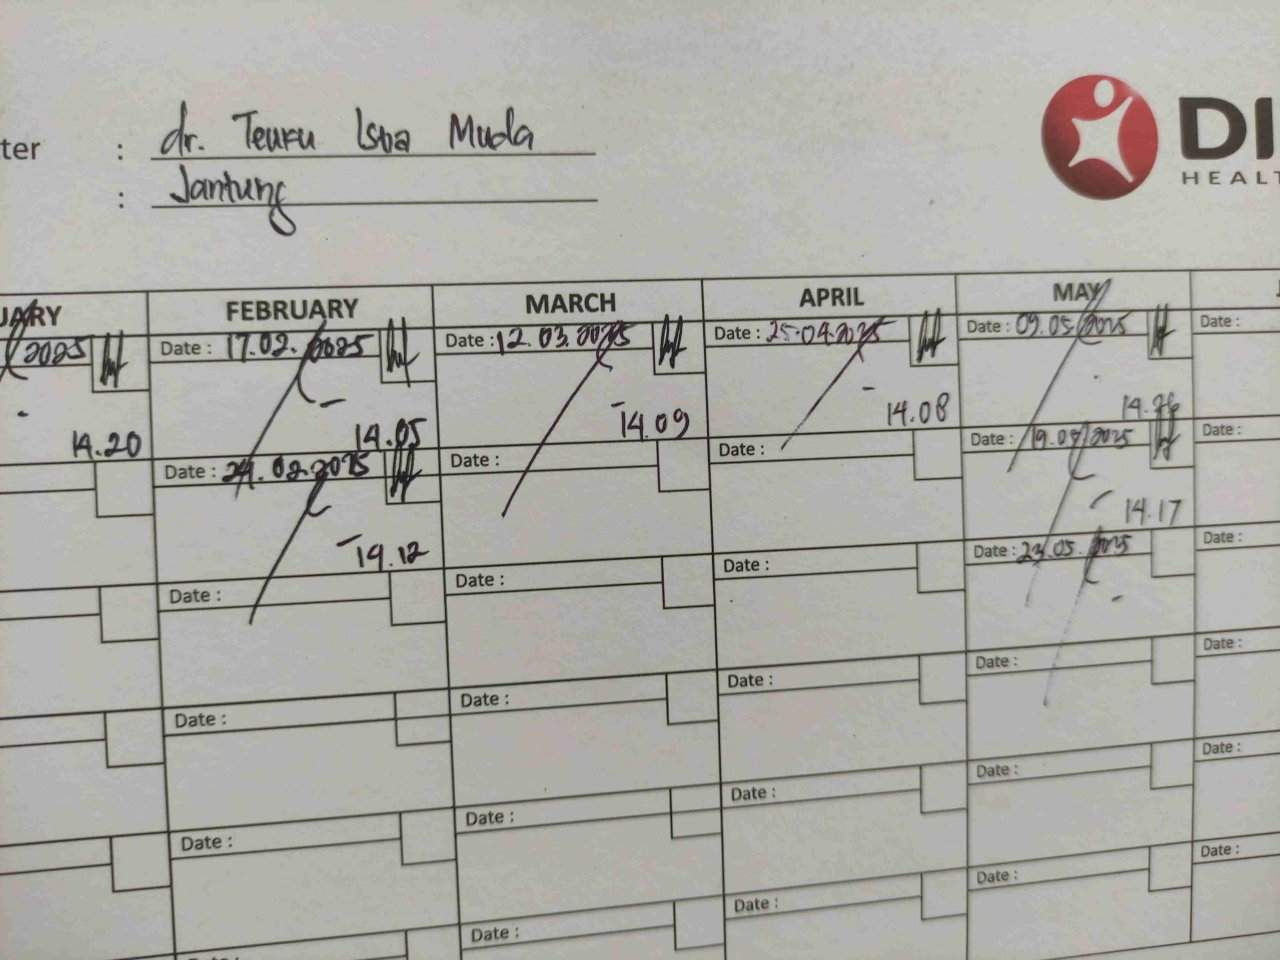 ter : dr. Teuku Isva Muda
: Jantung
DI
HEALT
UARY FEBRUARY MARCH APRIL MAY
2025 Date : 17.02.2025 Date : 12.03.2025 Date : 25.04.2025 Date : 09.05.2025 Date :
14.20 14.05 14.09 14.08
Date : 24.02.2025 Date : Date : Date : 19.05.2025 Date :
14.12 14.17
Date : Date : Date : Date : 23.05.2025 Date :
Date : Date : Date : Date : Date :
Date : Date : Date : Date : Date :
Date : Date : Date : Date : Date :